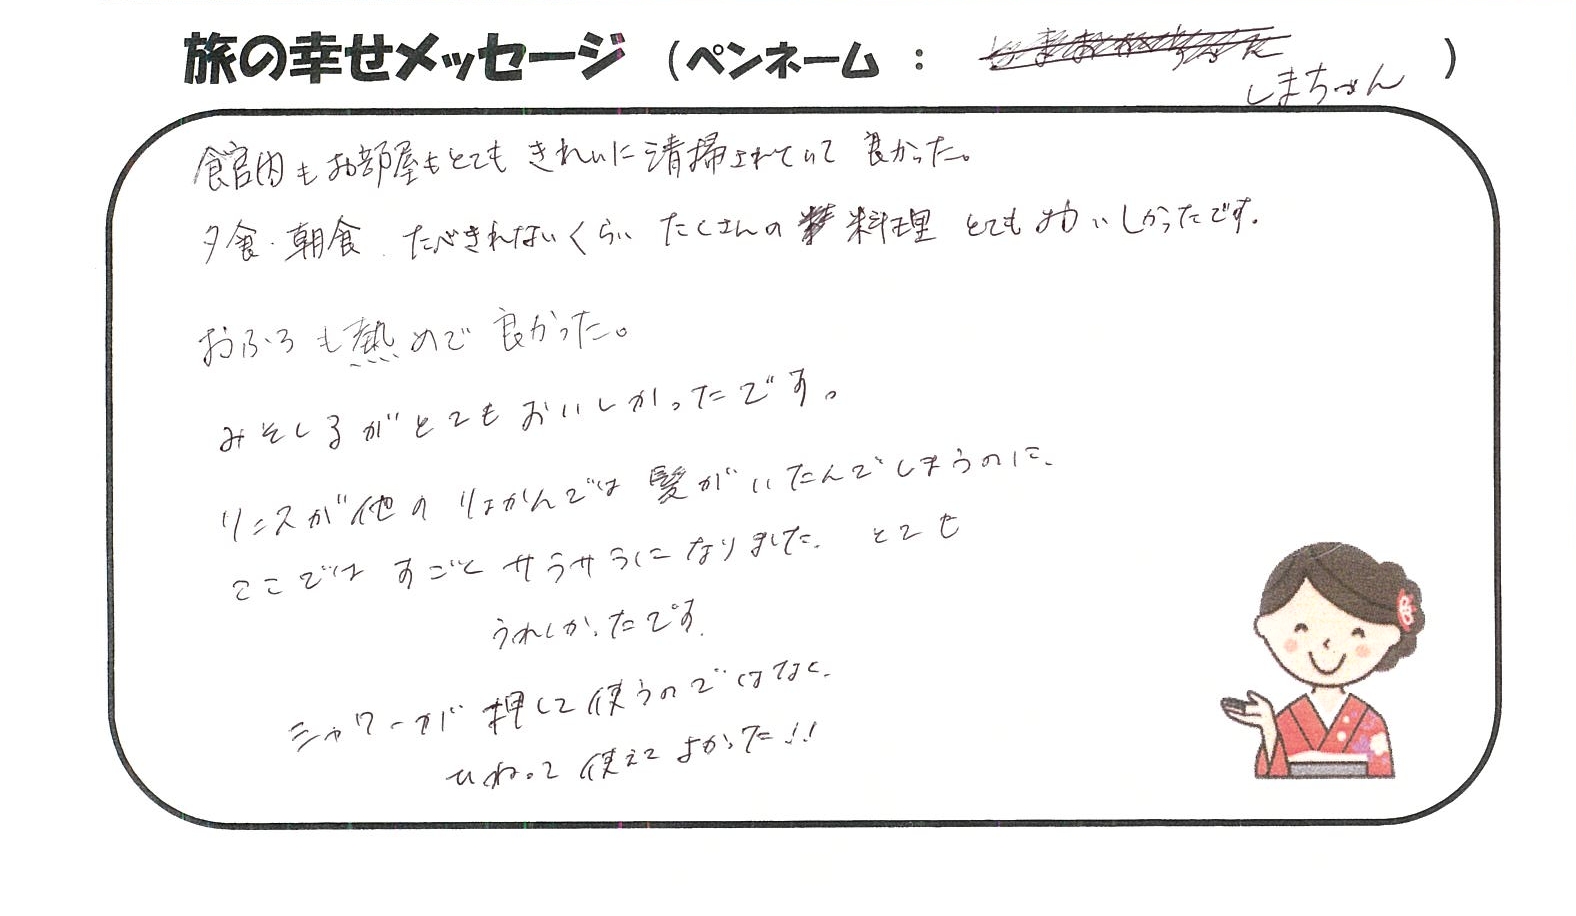 旅の幸せメッセージ (ペンネーム : しまちゃん )
館内もお部屋もとてもきれいに清掃されていて 良かった。
夕食・朝食 たべきれないくらい たくさんの 料理 とても おいしかったです。
おふろも熱めで 良かった。
みそしるがとてもおいしかったです。
リンスが他のりょかんでは髪がいたんでしまうのに、
ここでは すごく サラサラになりました。 とても
うれしかったです。
シャワーが 押して使うのではなく、
ひねって 使えて よかった!!